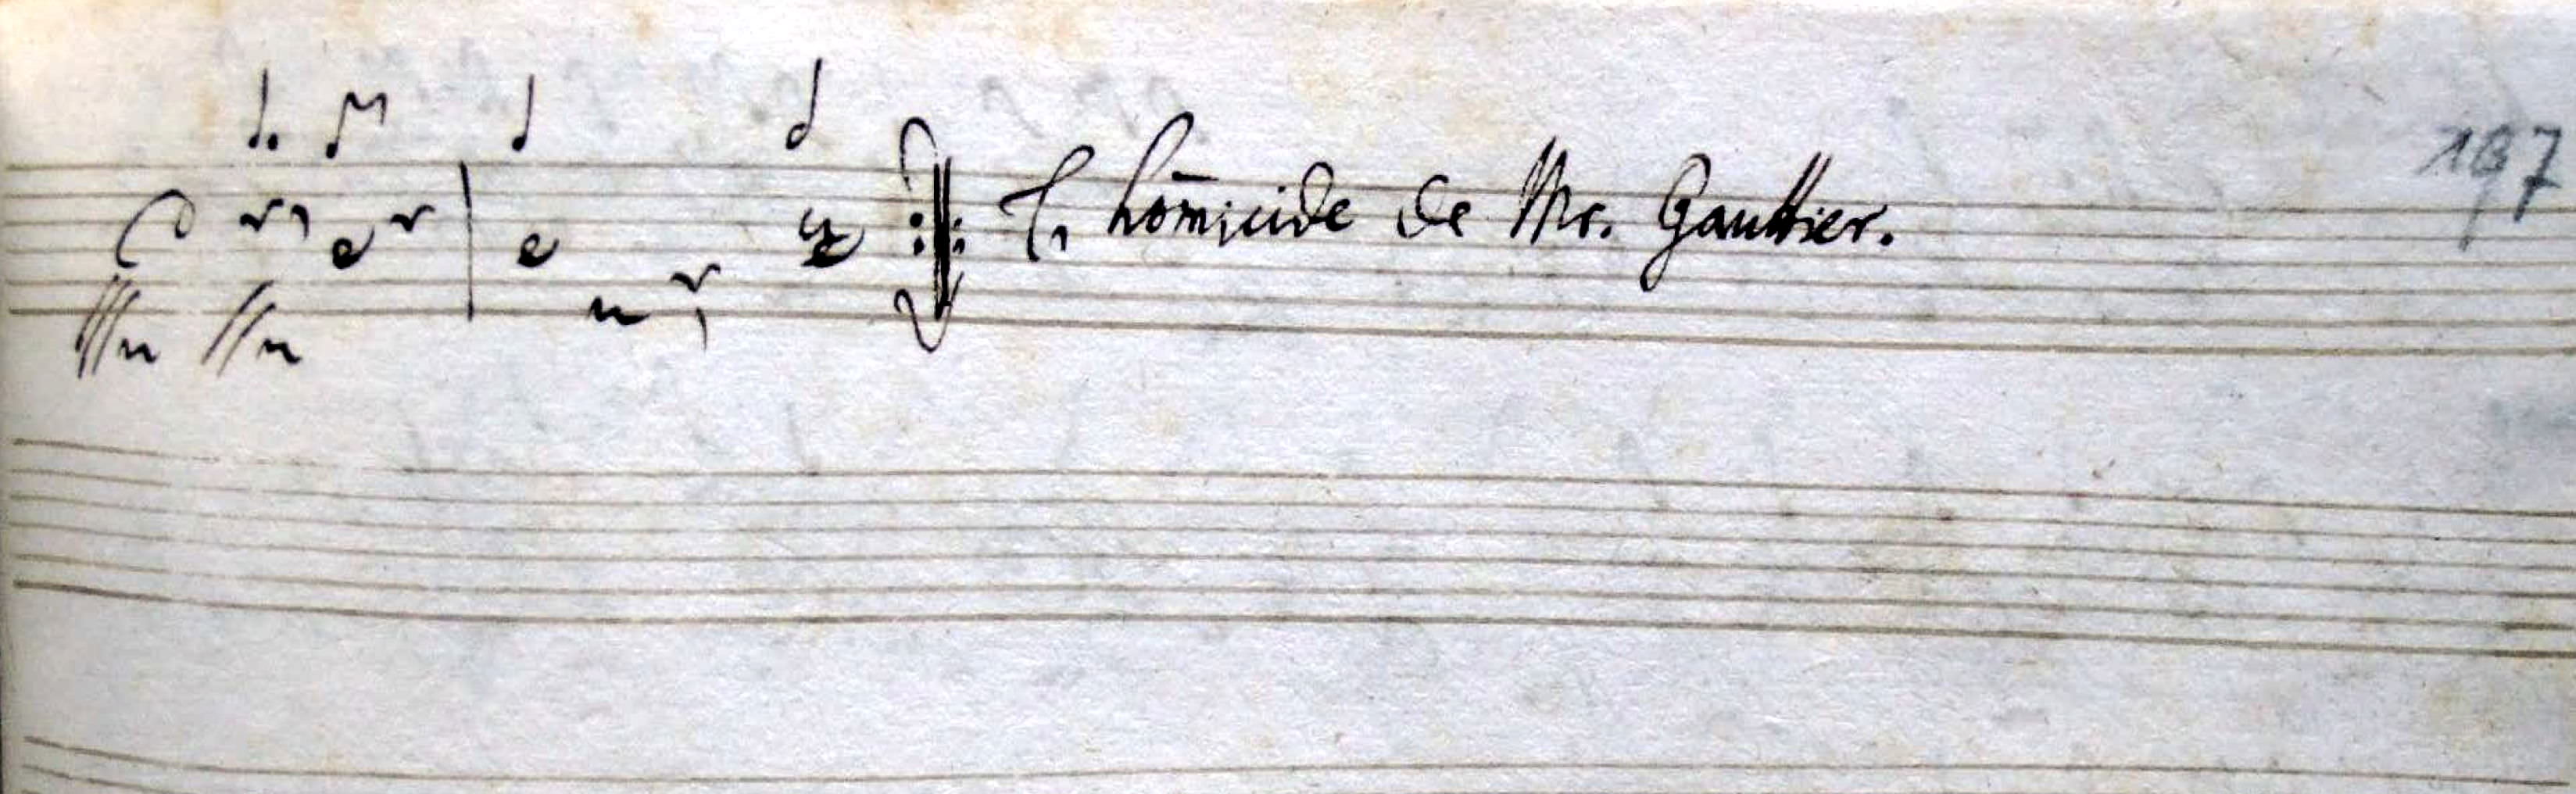 L'hom̄icide de Mr. Gaultier.
197